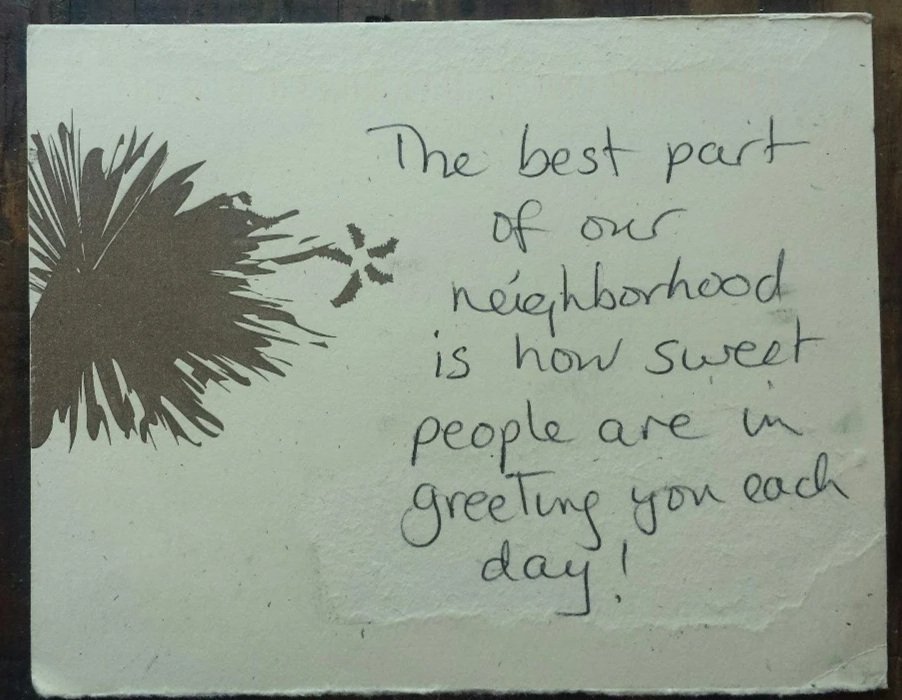 The best part
of our
neighborhood
is how sweet
people are in
greeting you each
day!